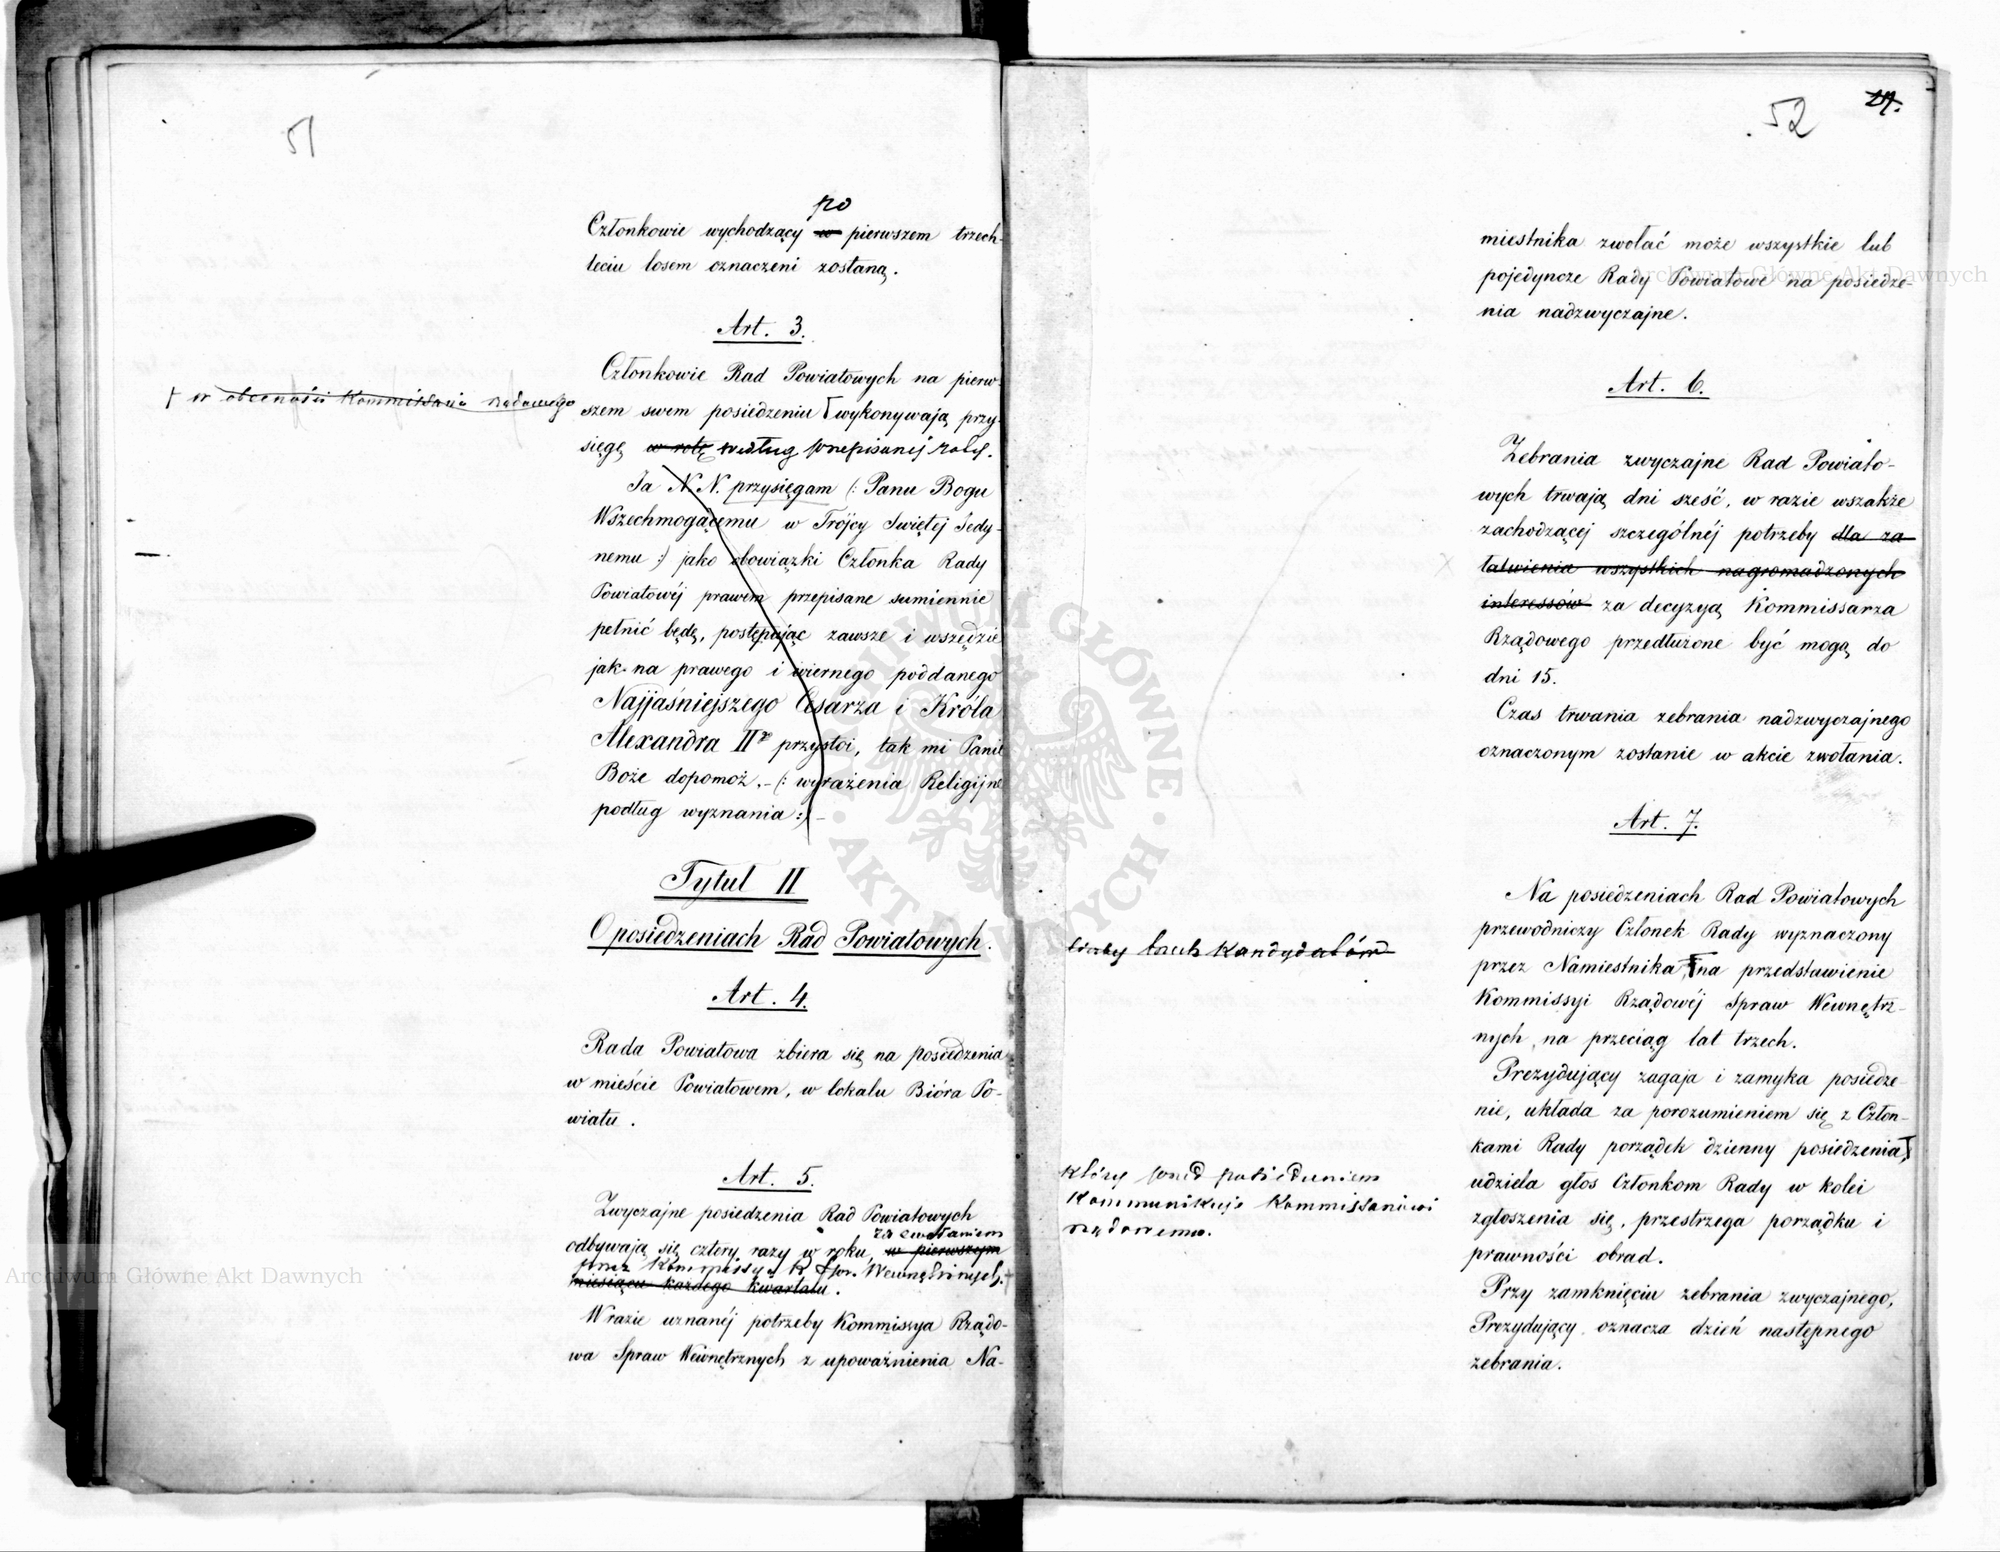 51
po
Członkowie wychodzący w pierwszem trzech-
leciu losem oznaczeni zostaną.
Art. 3.
Członkowie Rad Powiatowych na pierw-
+ w obecności Kommissarza rządowego
szem swem posiedzeniu wykonywają przy-
sięgę w rotę według przepisanej roty.
Ja N. N. przysięgam (: Panu Bogu
Wszechmogącemu w Trójcy Świętej Jedy-
nemu :) jako obowiązki Członka Rady
Powiatowéj prawem przepisane sumiennie
pełnić będę, postępując zawsze i wszędzie
jak na prawego i wiernego poddanego
Najjaśniejszego Cesarza i Króla
Alexandra II przystoi, tak mi Panie
Boże dopomoż.-(: wyrażenia Religijne
podług wyznania :)-
Tytuł II
O posiedzeniach Rad Powiatowych.
Art. 4.
Rada Powiatowa zbiera się na posiedzenia
w mieście Powiatowem, w lokalu Bióra Po-
wiatu.
Art. 5.
Zwyczajne posiedzenia Rad Powiatowych
za zwołaniem
odbywają się cztery razy w roku, w pierwszym
przez Kommissyą R. Spr. Wewnętrznych.
miesiącu każdego kwartału.
W razie uznanéj potrzeby Kommissya Rządo-
wa Spraw Wewnętrznych z upoważnienia Na-
52
27.
miestnika zwołać może wszystkie lub
pojedyncze Rady Powiatowe na posiedze-
nia nadzwyczajne.
Art. 6.
Zebrania zwyczajne Rad Powiato-
wych trwają dni sześć, w razie wszakże
zachodzącej szczególnéj potrzeby dla za
łatwienia wszystkich nagromadzonych
interessów za decyzyą Kommissarza
Rządowego przedłużone być mogą do
dni 15.
Czas trwania zebrania nadzwyczajnego
oznaczonym zostanie w akcie zwołania.
Art. 7.
Na posiedzeniach Rad Powiatowych
przewodniczy Członek Rady wyznaczony
liczby trzech kandydatów
przez Namiestnika, na przedstawienie
Kommissyi Rządowéj Spraw Wewnętrz-
nych, na przeciąg lat trzech.
Prezydujący zagaja i zamyka posiedze-
nie, układa za porozumieniem się z Człon-
kami Rady porządek dzienny posiedzenia,
który przed posiedzeniem
Kommunikuje Kommissarzowi
rządowemu.
udziela głos Członkom Rady w kolei
zgłoszenia się, przestrzega porządku i
prawności obrad.
Przy zamknięciu zebrania zwyczajnego,
Prezydujący oznacza dzień następnego
zebrania.
Archiwum Główne Akt Dawnych
Archiwum Główne Akt Dawnych
ARCHIWUM GŁÓWNE · AKT DAWNYCH ·